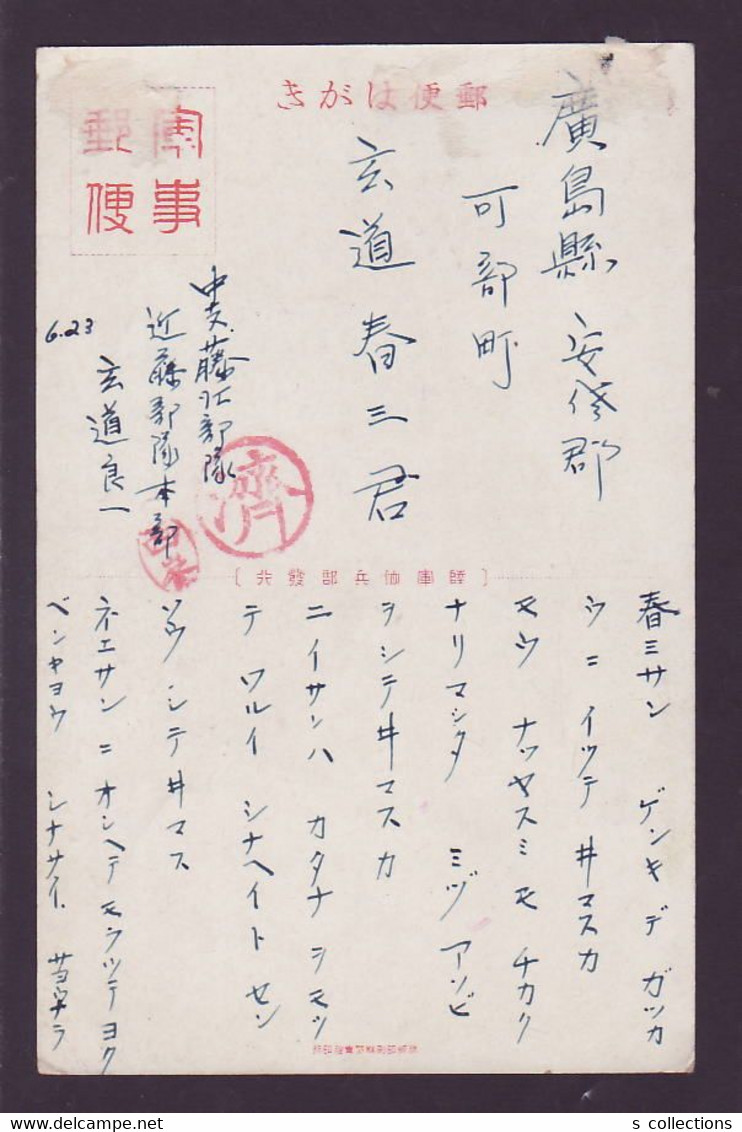 郵便はがき
軍事
郵便
廣島縣安佐郡
可部町
玄道春三君
中支、藤江部隊
近藤部隊本部
玄道良一
6.23
濟
〔陸軍恤兵部發行〕
春ミサン ゲンキデ ガツカ
ウニ イツテ 井マスカ
モウ ナツヤスミモ チカク
ナリマシタ ミヅアソビ
ヲシテ井マスカ
ニイサンハ カタナヲモツ
テ ワルイ シナヘイト セン
ソウ シテ井マス
ネエサンニ オシヘテモラツテヨク
ベンキヨウ シナサイ サヨウナラ
s collections